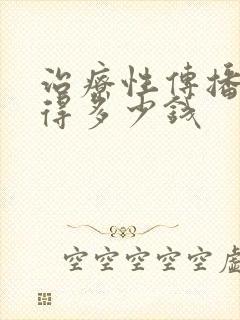 治療性傳播
得多少錢
空空空空空虛